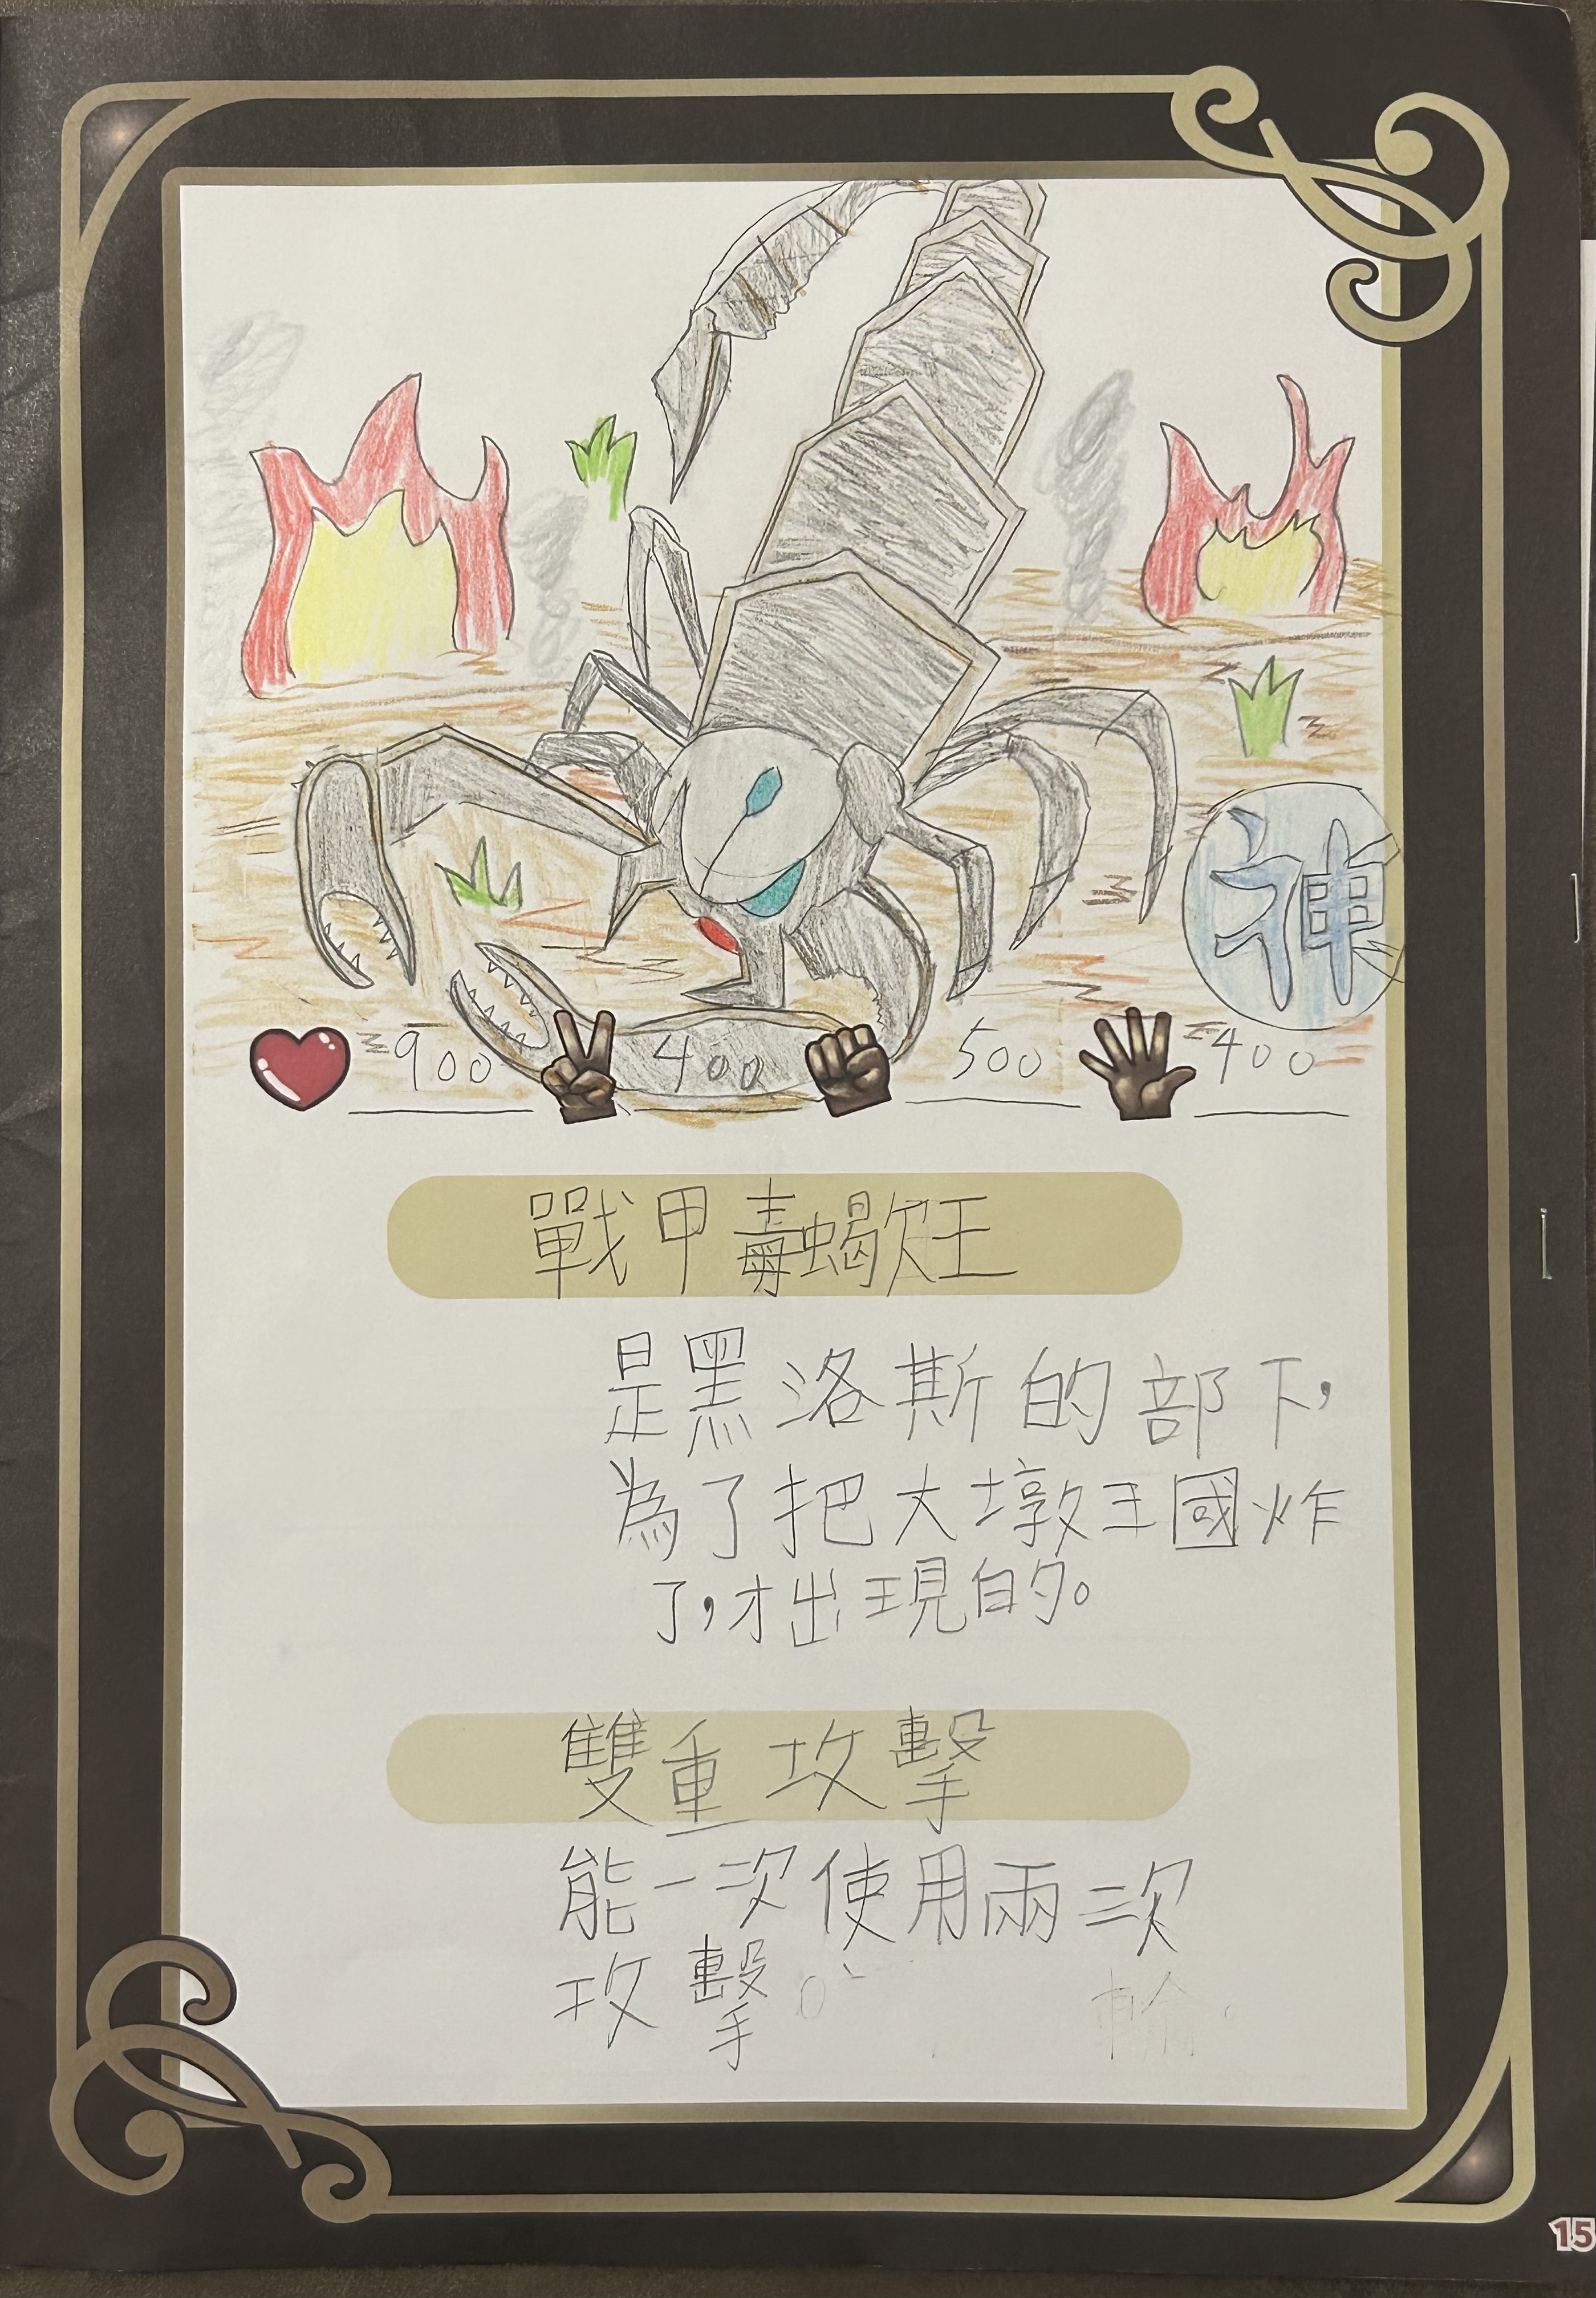 神
900 400 500 400
戰甲毒蝎王
是黑洛斯的部下,
為了把大墩王國炸
了,才出現的。
雙重攻擊
能一次使用兩三次
攻擊。
輪。
15